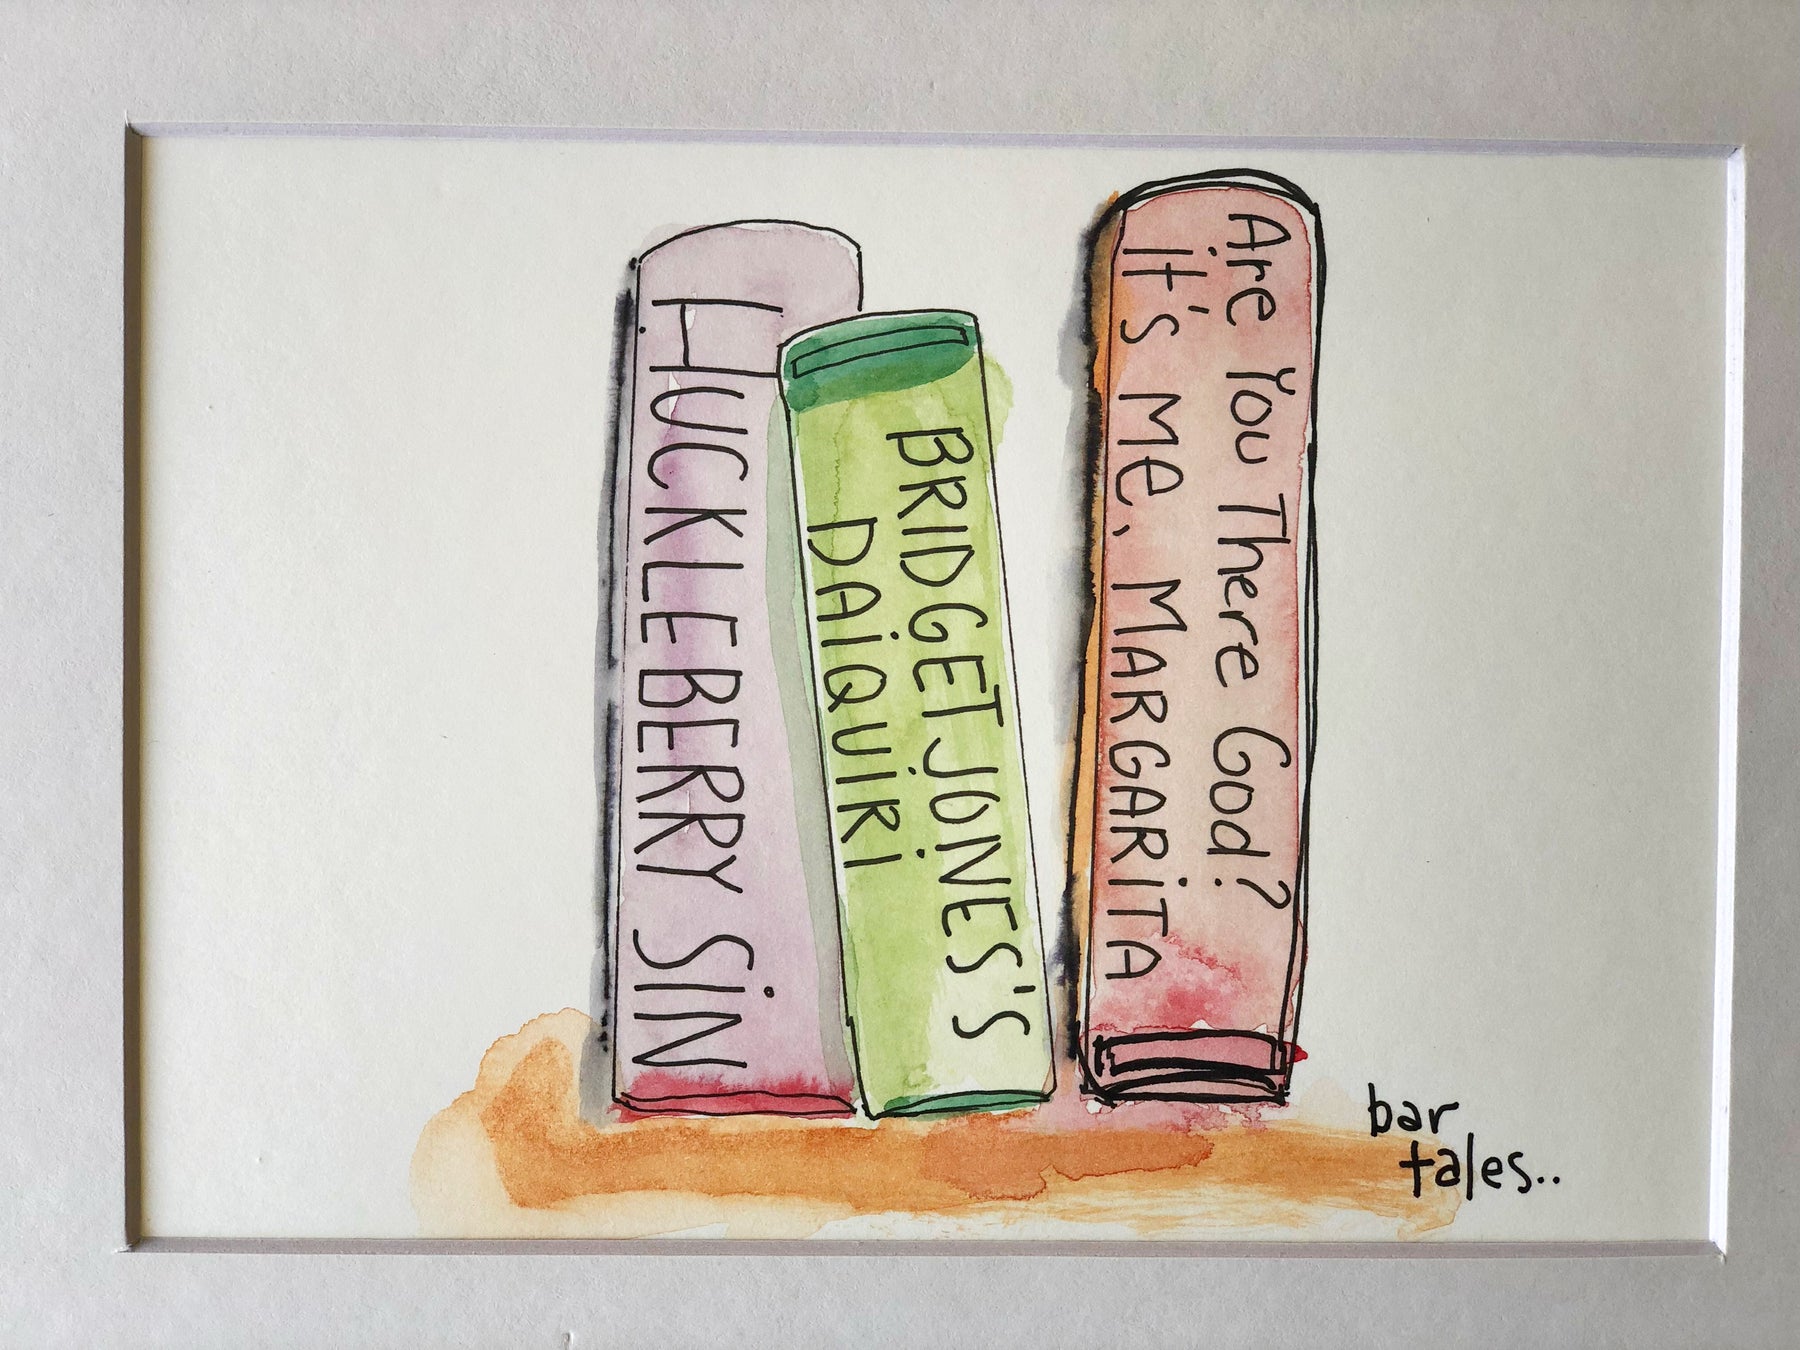 HUCKLEBERRY SIN
BRIDGET JONES'S
DAiQUiRi
Are You There God?
It's Me, MARGARiTA
bar
tales..